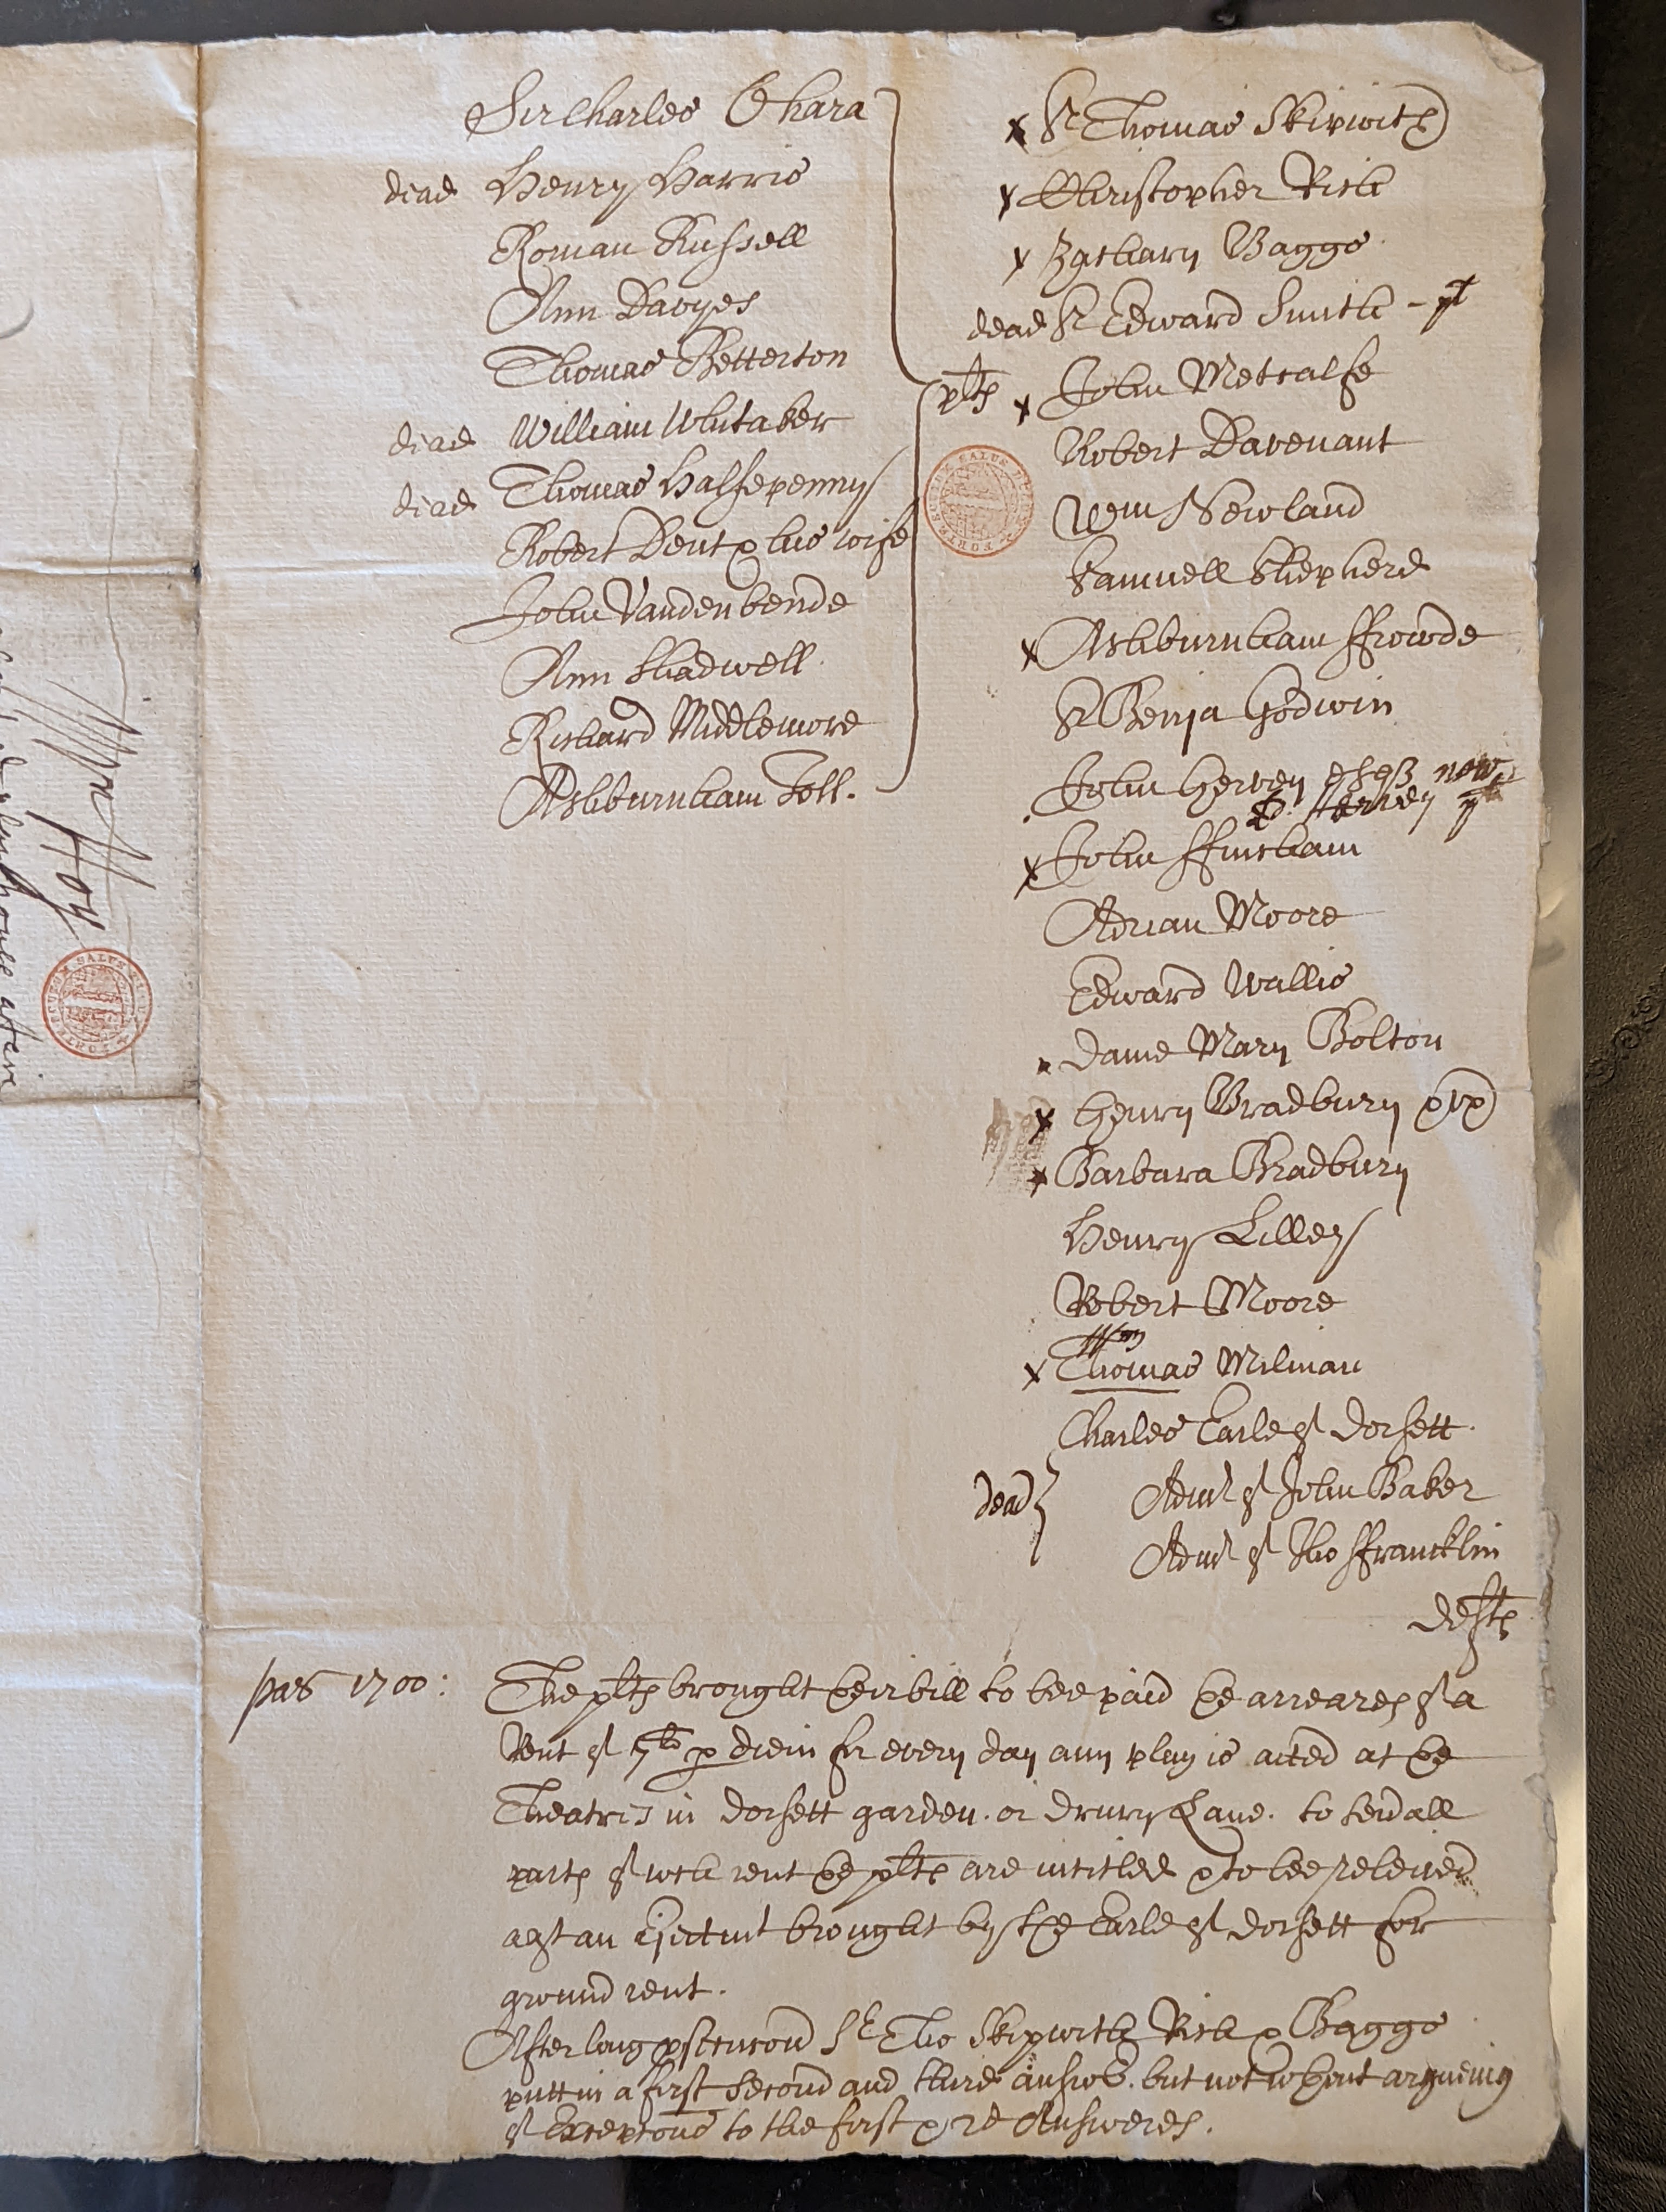 Sir Charles Ohara
dead Henry Harris
Roman Russell
Ann Davyes
Thomas Betterton
dead William Whitaker
dead Thomas Halfepenny
Robert Dent & his wife
John Vandenbende
Ann Shadwell
Richard Middlemore
Ashburnham Toll.
plts
x Sr Thomas Skipwith
x Christopher Rich
x Zachary Baggs
dead Sr Edward Smith - pt
x John Metcalfe
Robert Davenant
Wm Newland
Samuell Shepherd
x Ashburnham ffrowde
Sr Benja Godwin
John Hervey now
Hervey pt
x John ffincham
Adrian Moore
Edward Wallis
Dame Mary Bolton
x Henry Bradbury & ux
x Barbara Bradbury
Henry Lilley
Robert Moore
Wm
x Thomas Milman
Charles Earle of Dorsett.
dead Admr of John Baker
Admr of Tho ffrancklin
defts
pas 1700: The plts brought their bill to bee paid the arreares of a
Rent of per diem for every day any play is acted at the
Theatres in Dorsett garden. or drury Lane. to severall
parts of wch rent the plts are intitled & to bee releived
agst an Ejectmt brought by the Earle of Dorsett for
ground rent.
After long Sr Tho Skipwith Rich & Baggs
putt in a first second and third answer. but not without argueing
of Excepcons to the first & 2d Answeres.
Mr Hoy